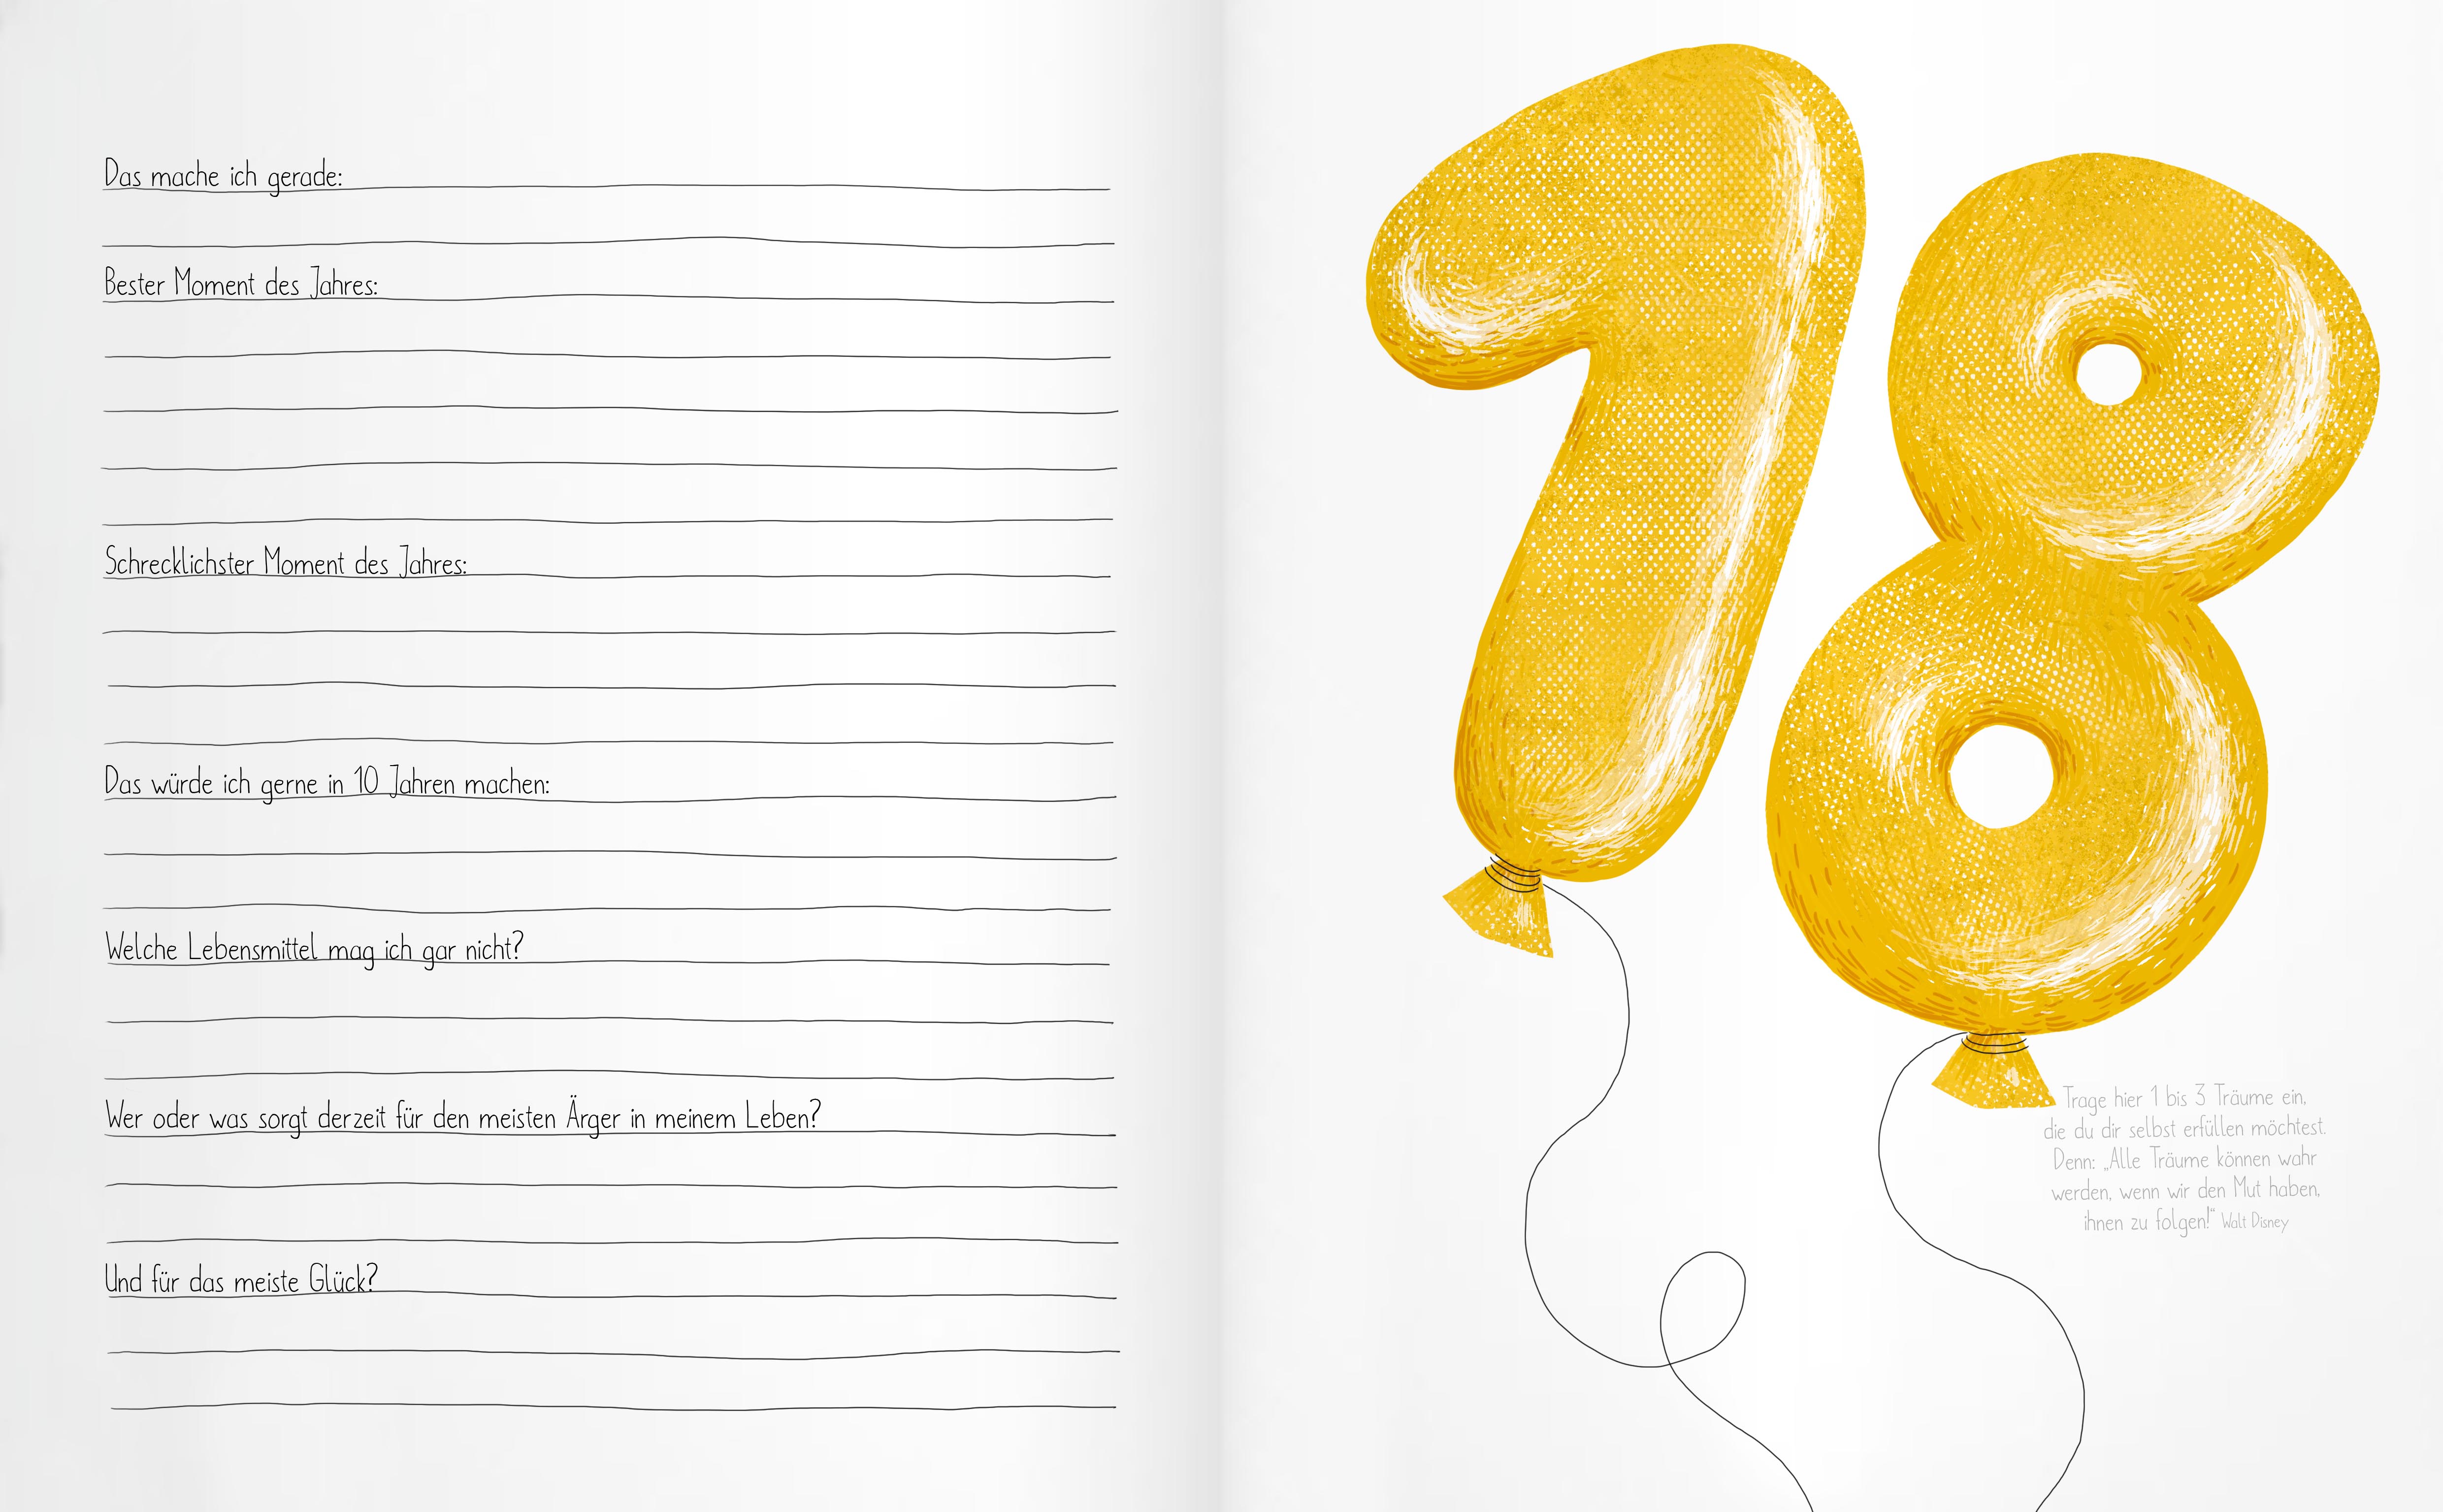 Das mache ich gerade:
Bester Moment des Jahres:
Schrecklichster Moment des Jahres:
Das würde ich gerne in 10 Jahren machen:
Welche Lebensmittel mag ich gar nicht?
Wer oder was sorgt derzeit für den meisten Ärger in meinem Leben?
Und für das meiste Glück?
18
Trage hier 1 bis 3 Träume ein,
die du dir selbst erfüllen möchtest.
Denn: „Alle Träume können wahr
werden, wenn wir den Mut haben,
ihnen zu folgen!“ Walt Disney